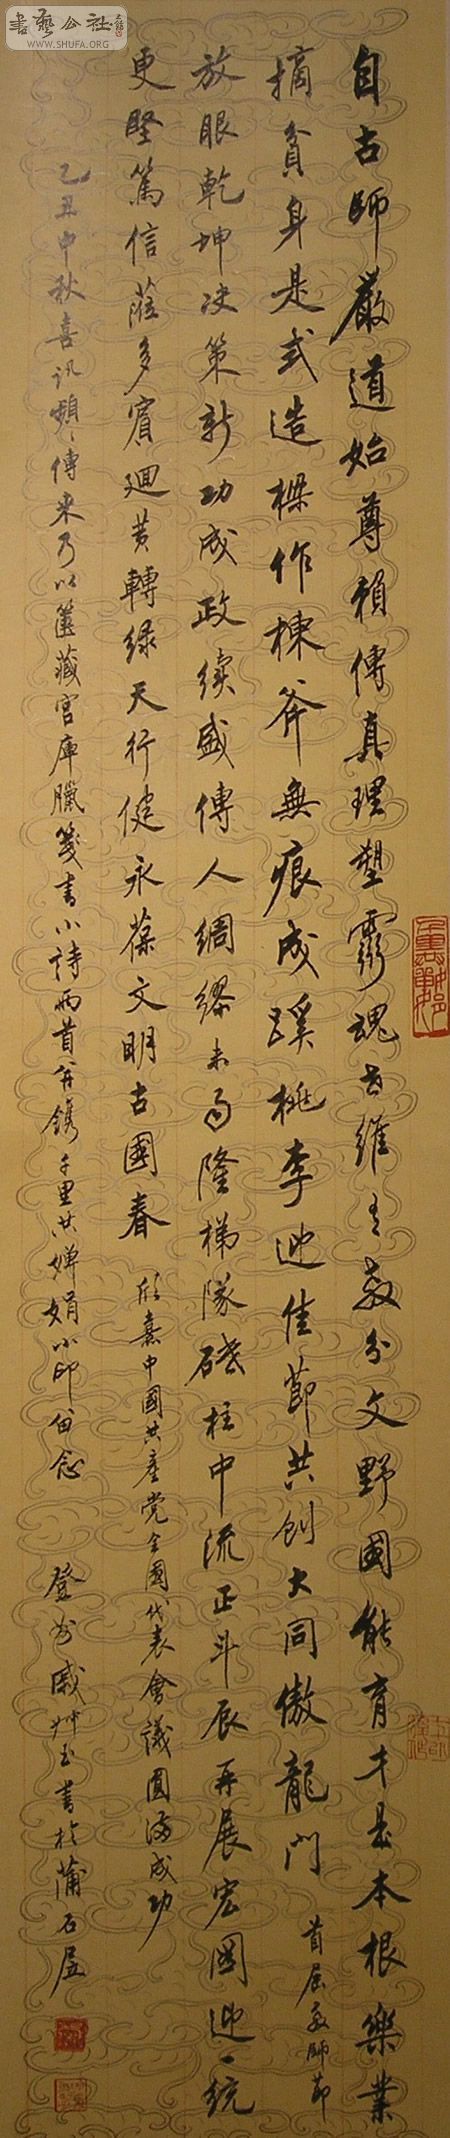 書藝公社
WWW.SHUFA.ORG
自古師嚴道始尊賴傳真理塑靈魂世維主敎分文野國能育才是本根樂業
摘貧身是式造樑作棟斧無痕成蹊桃李迎佳節共創大同傲龍門 首屆敎師節
放眼乾坤决策新功成政績盛傳人綢繆未雨隆梯隊砥柱中流正斗辰再展宏圖迎一統
更堅篤信蒞多賓迴黄轉綠天行健永葆文明古國春 欣熹中國共産党全國代表會議圓滿成功
乙丑中秋喜訊頻頻傳来乃以篋藏官庫臘箋書小詩兩首并鐫千里共嬋娟小印留念 登州戚艸玉書於蒲石居